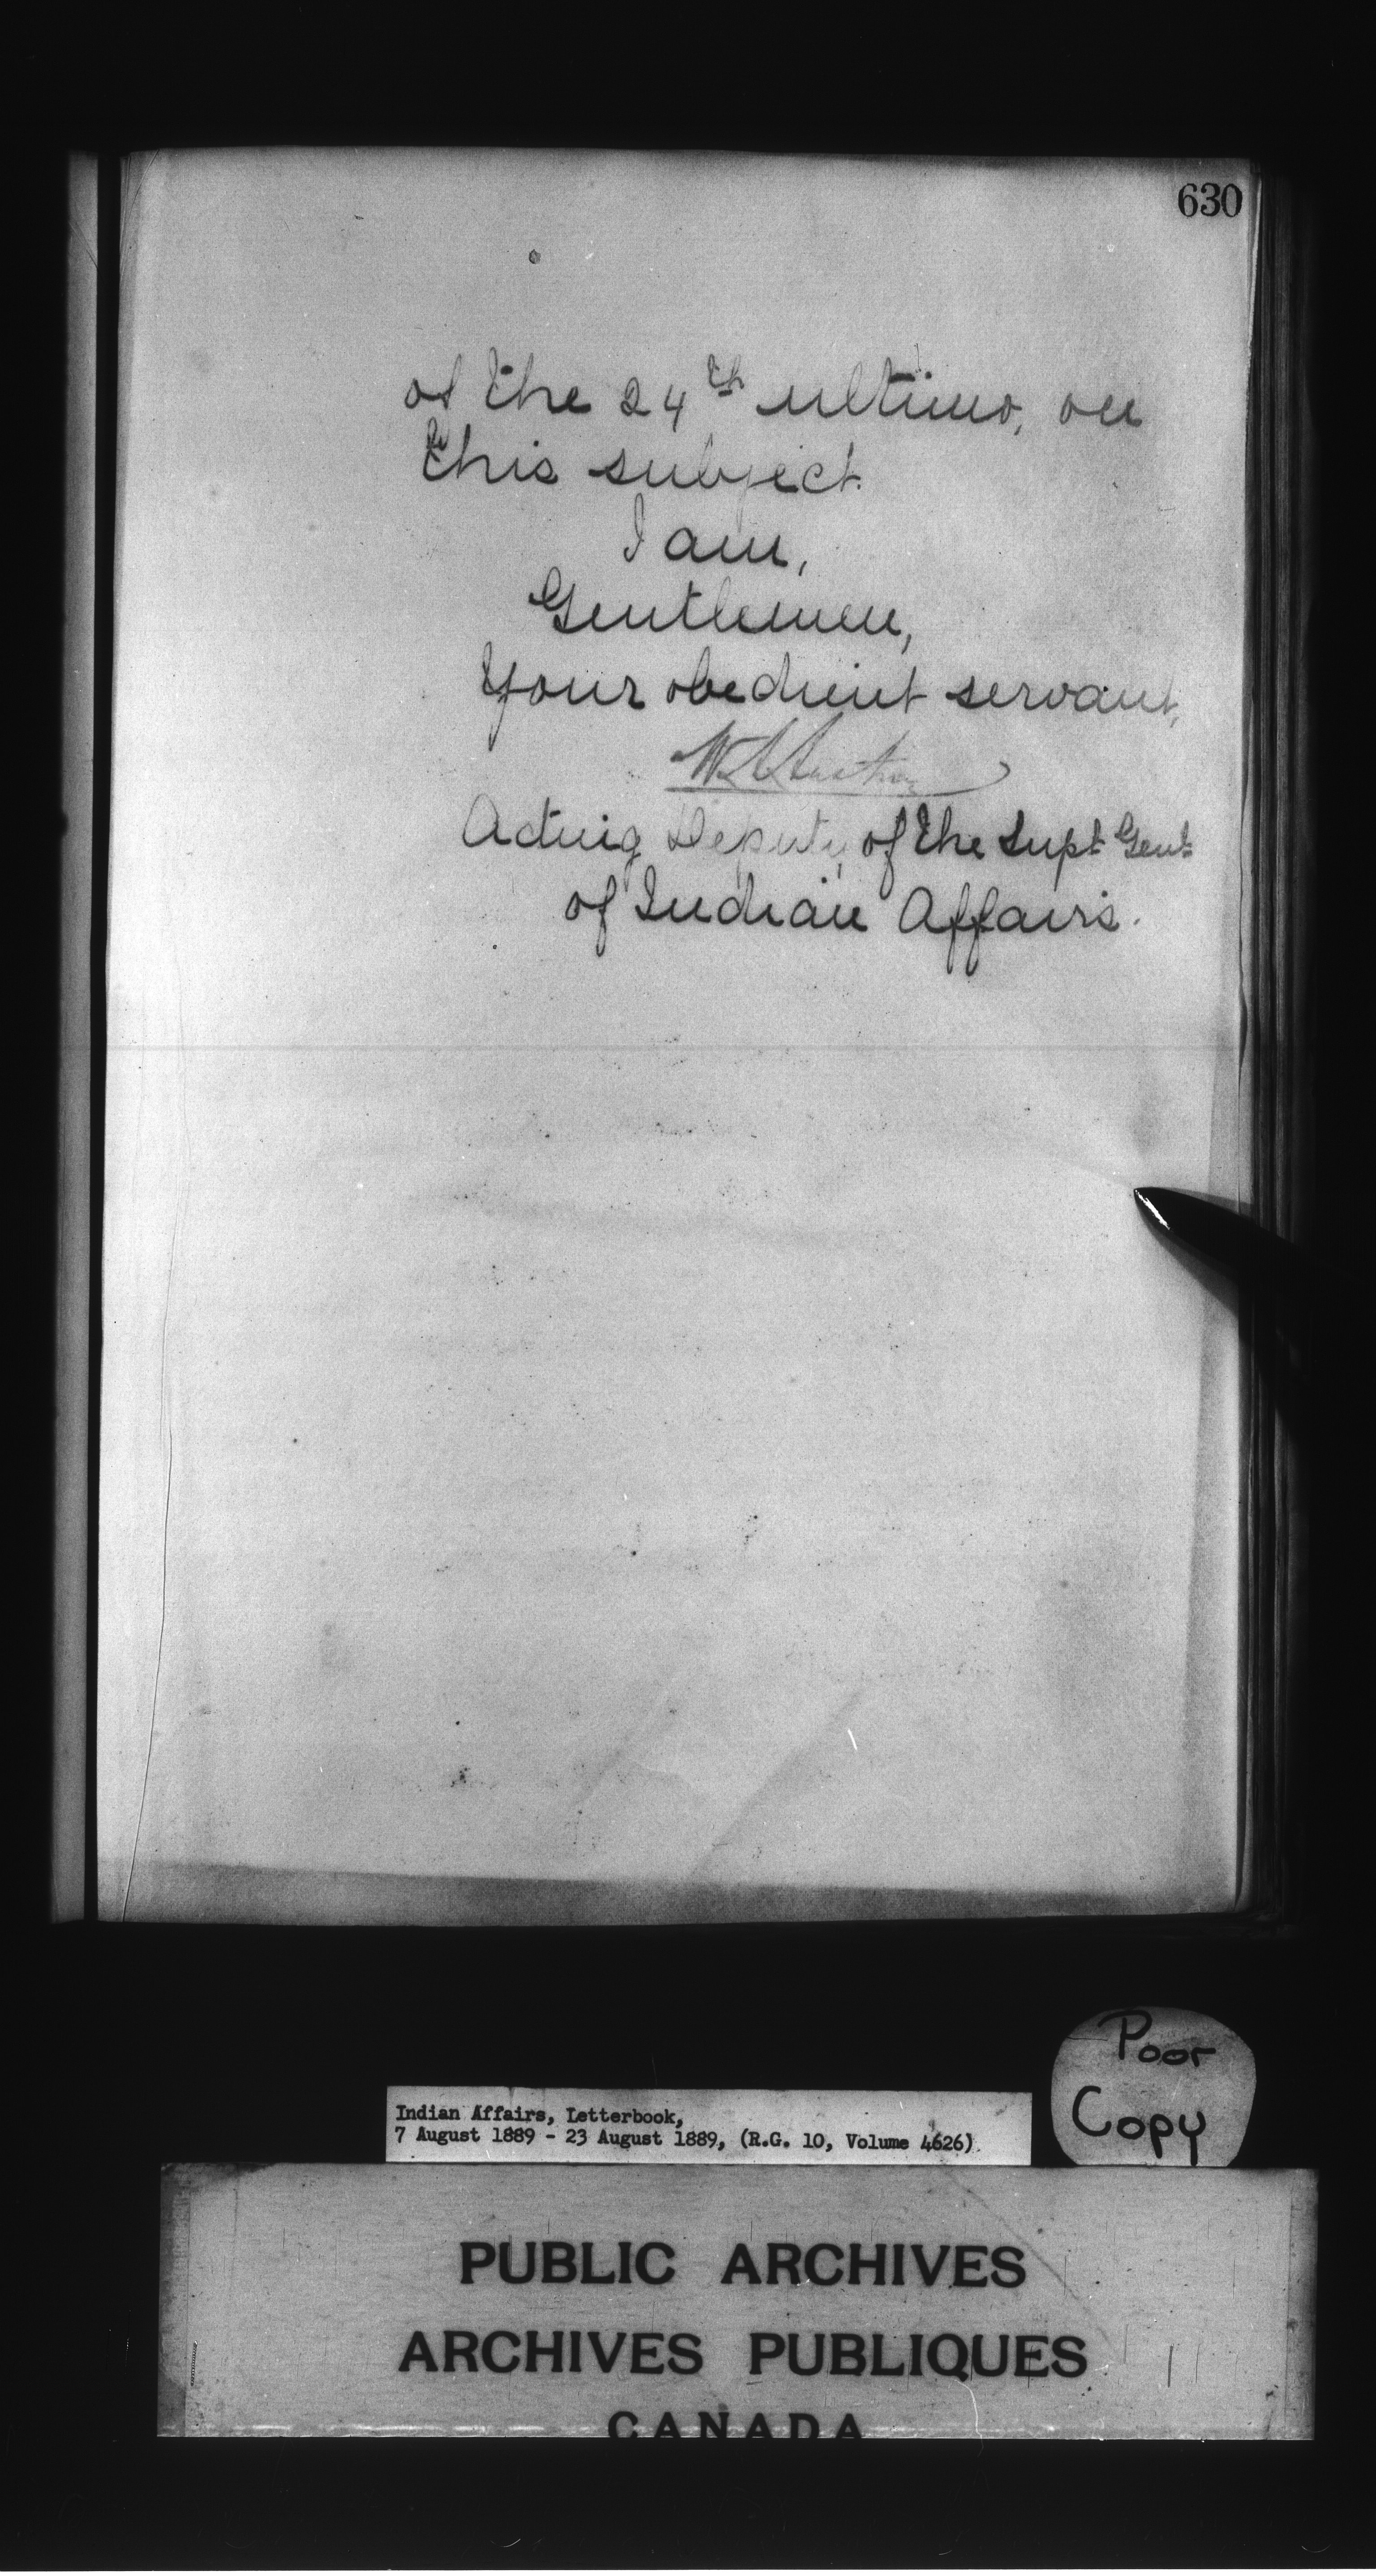 630
of the 24th ultimo, on
this subject.
I am,
Gentlemen,
Your obedient servant,
Acting Deputy of the Supt Genl
of Indian Affairs.
Poor
Copy
Indian Affairs, Letterbook,
7 August 1889 - 23 August 1889, (R.G. 10, Volume 4626)
PUBLIC ARCHIVES
ARCHIVES PUBLIQUES
CANADA